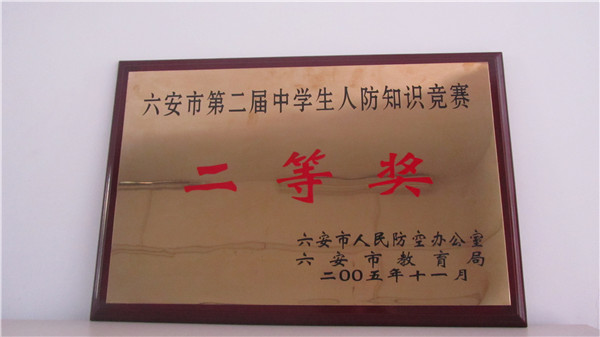 六安市第二届中学生人防知识竞赛
二等奖
六安市人民防空办公室
六安市教育局
二〇〇五年十一月